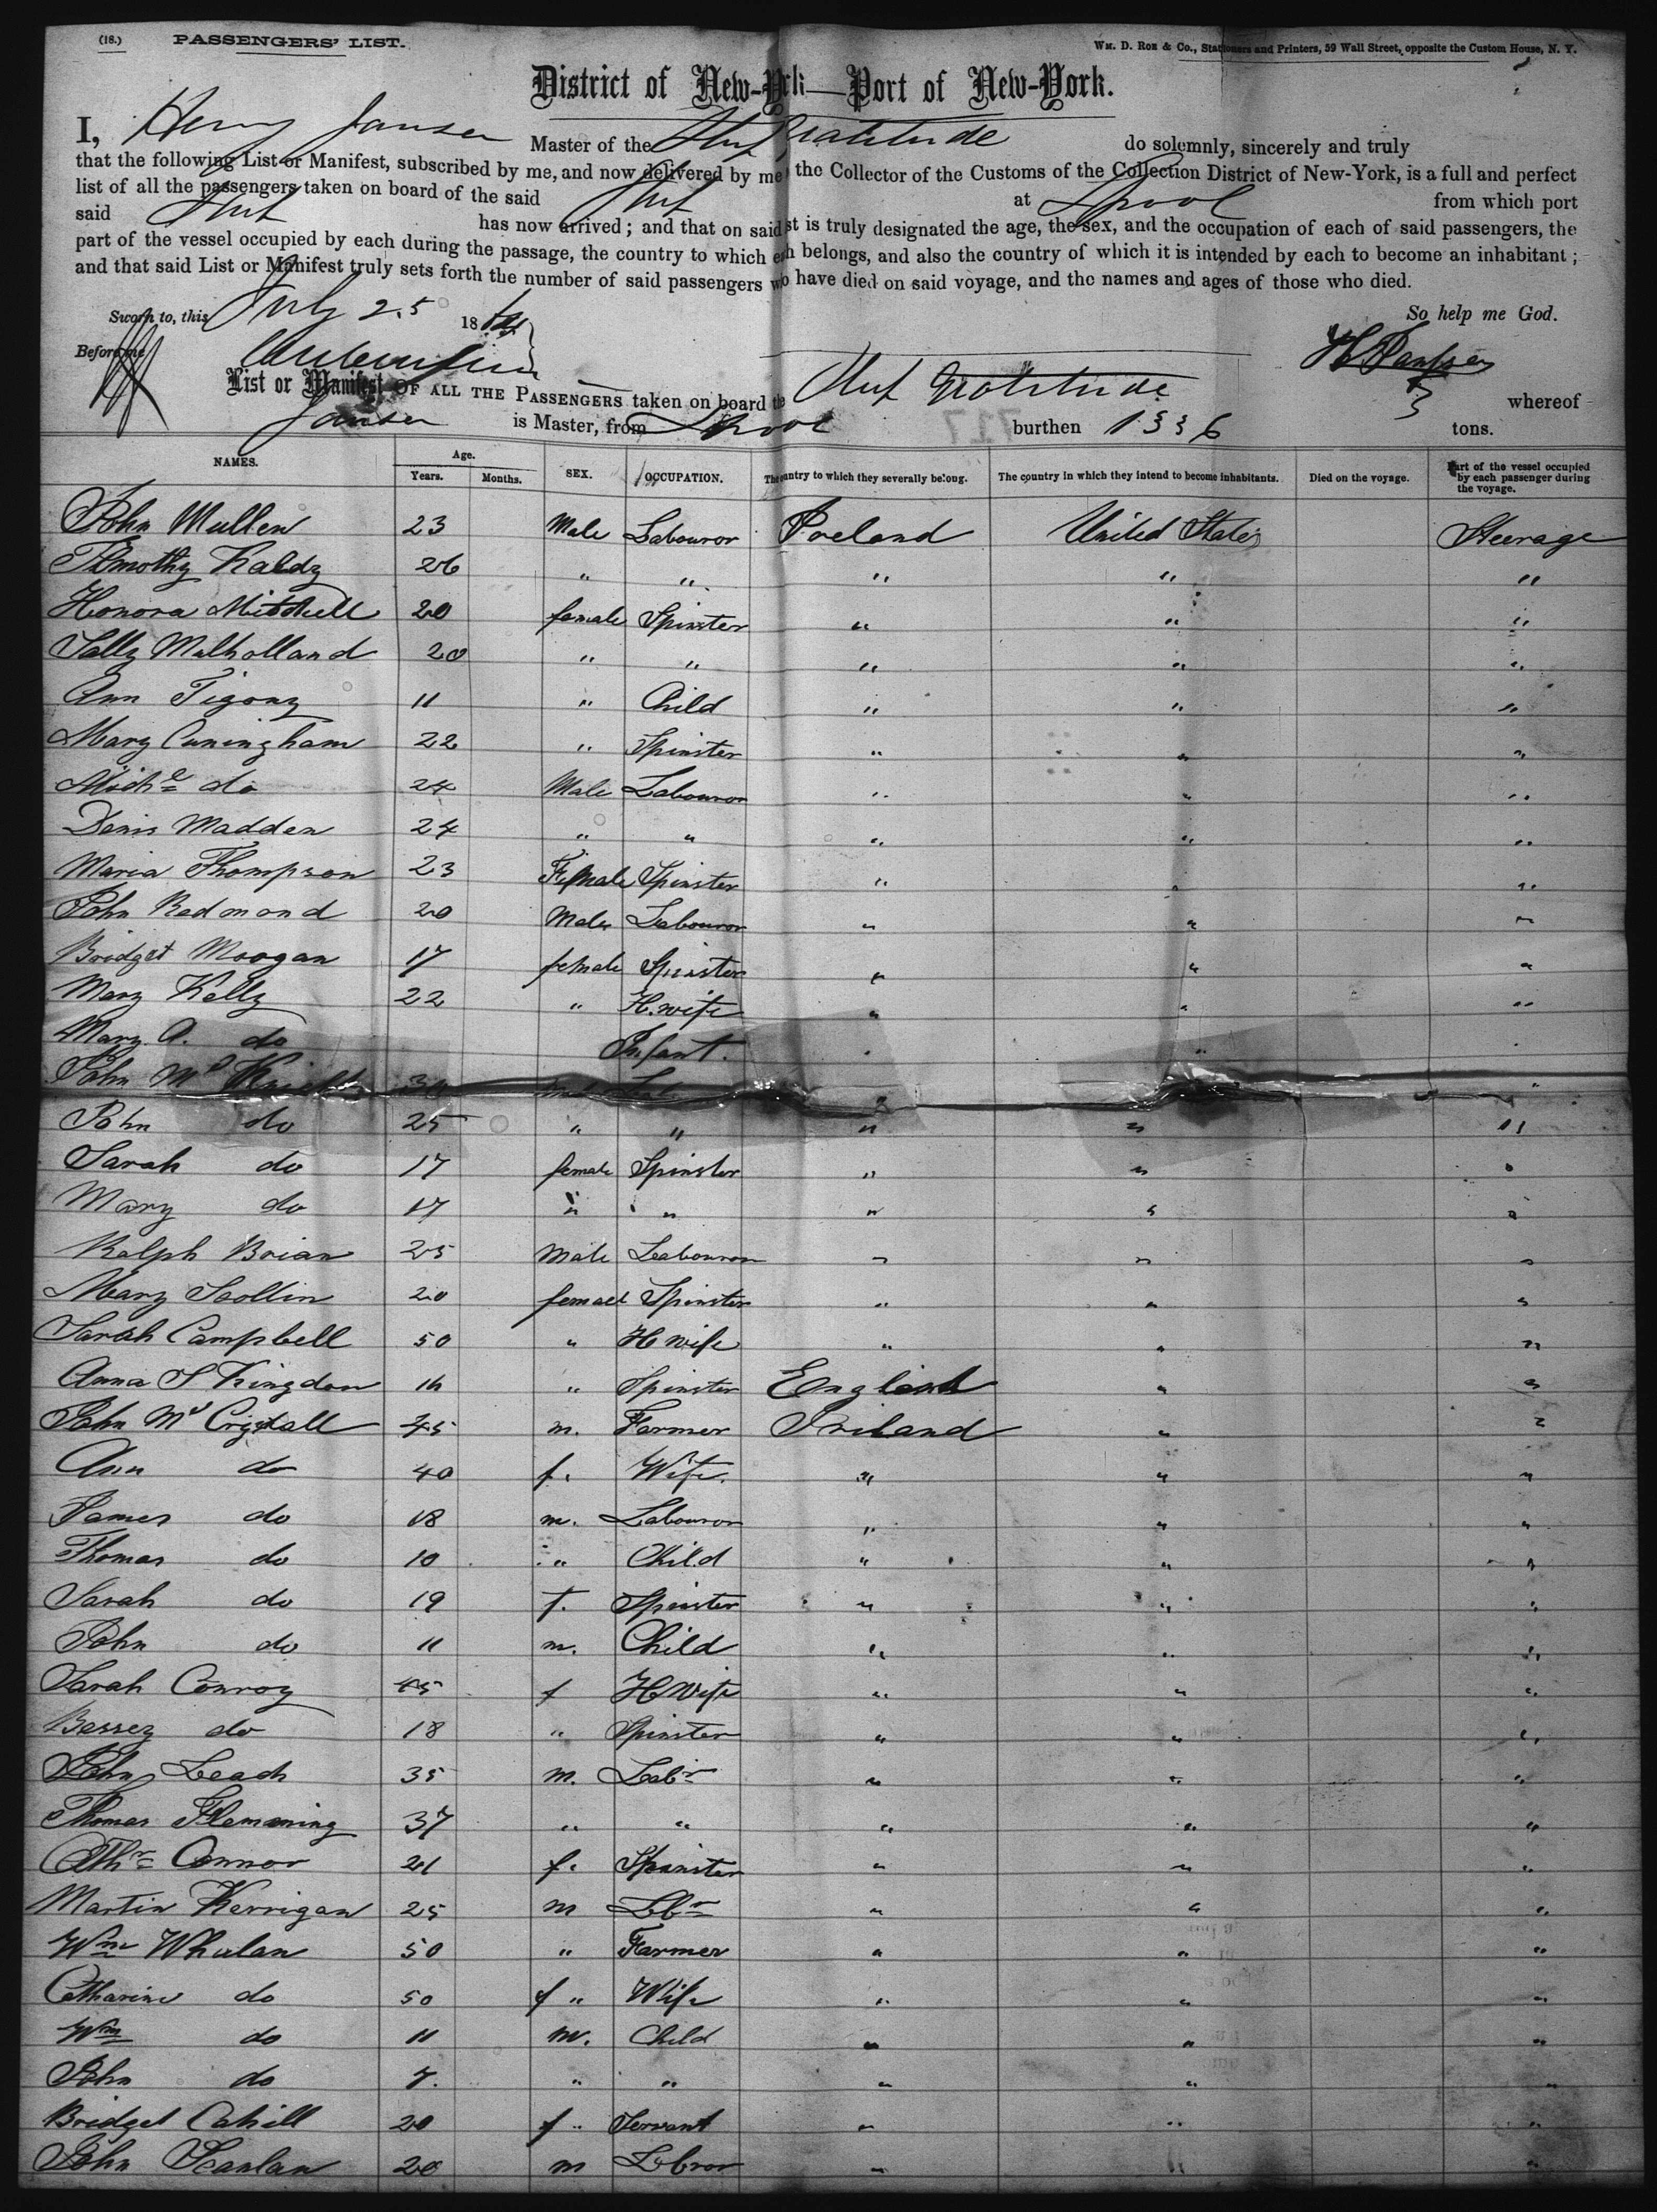 (18.) PASSENGERS' LIST. Wm. D. Roe & Co., Stationers and Printers, 59 Wall Street, opposite the Custom House, N. Y.
District of New-York—Port of New-York.
I, Henry Jansen Master of the Ship Gratitude do solemnly, sincerely and truly
that the following List or Manifest, subscribed by me, and now delivered by me the Collector of the Customs of the Collection District of New-York, is a full and perfect
list of all the passengers taken on board of the said Ship at Lpool from which port
said Ship has now arrived; and that on said st is truly designated the age, the sex, and the occupation of each of said passengers, the
part of the vessel occupied by each during the passage, the country to which each belongs, and also the country of which it is intended by each to become an inhabitant;
and that said List or Manifest truly sets forth the number of said passengers who have died on said voyage, and the names and ages of those who died.
Sworn to, this July 25 18 So help me God.
Before me H. Jansen
List or Manifest OF ALL THE PASSENGERS taken on board the Ship Gratitude whereof
Jansen is Master, from Lpool burthen 1336 tons.
NAMES. Age. Years. Months. SEX. OCCUPATION. The country to which they severally belong. The country in which they intend to become inhabitants. Died on the voyage. Part of the vessel occupied by each passenger during the voyage.
John Mullen 23 Male Labouror Ireland United States Steerage
Timothy Kaldy 26 " " " " "
Honora Mitchell 20 female Spinster " " "
Sally Mulholland 20 " " " " "
Ann Tigony 11 " Child " " "
Mary Cuningham 22 " Spinster " " "
Michl do 24 Male Labouror " " "
Denis Madden 24 " " " " "
Maria Thompson 23 Female Spinster " " "
John Redmond 20 Male Labouror " " "
Bridget Moogan 17 female Spinster " " "
Mary Kelly 22 " H. wife " " "
Mary A. do Infant. " " "
John Mc Knight " "
John do 25 " " " " "
Sarah do 17 female Spinster " " "
Mary do 17 " " " " "
Ralph Brian 25 Male Labouror " " "
Mary Scollin 20 female Spinster " " "
Sarah Campbell 50 " H wife " " "
Anna S Kingdon 16 " Spinster English " "
John Mc Crystall 45 m. Farmer Ireland " "
Ann do 40 f. Wife. " " "
James do 18 m. Labouror " " "
Thomas do 10 " Child " " "
Sarah do 19 f. Spinster " " "
John do 11 m. Child " " "
Sarah Conroy 45 f H Wife " " "
Bessey do 18 " Spinster " " "
John Leach 35 m. Labr " " "
Thomas Flemming 37 " " " " "
Cathr Connor 21 f. Spinster " " "
Martin Kerrigan 25 m Lbr " " "
Wm Whalan 50 " Farmer " " "
Catharine do 50 f " Wife " " "
Wm do 11 m. Child " " "
John do 7. " " " " "
Bridget Cahill 20 f " Servant " " "
John Scanlan 20 m Lbror " " "